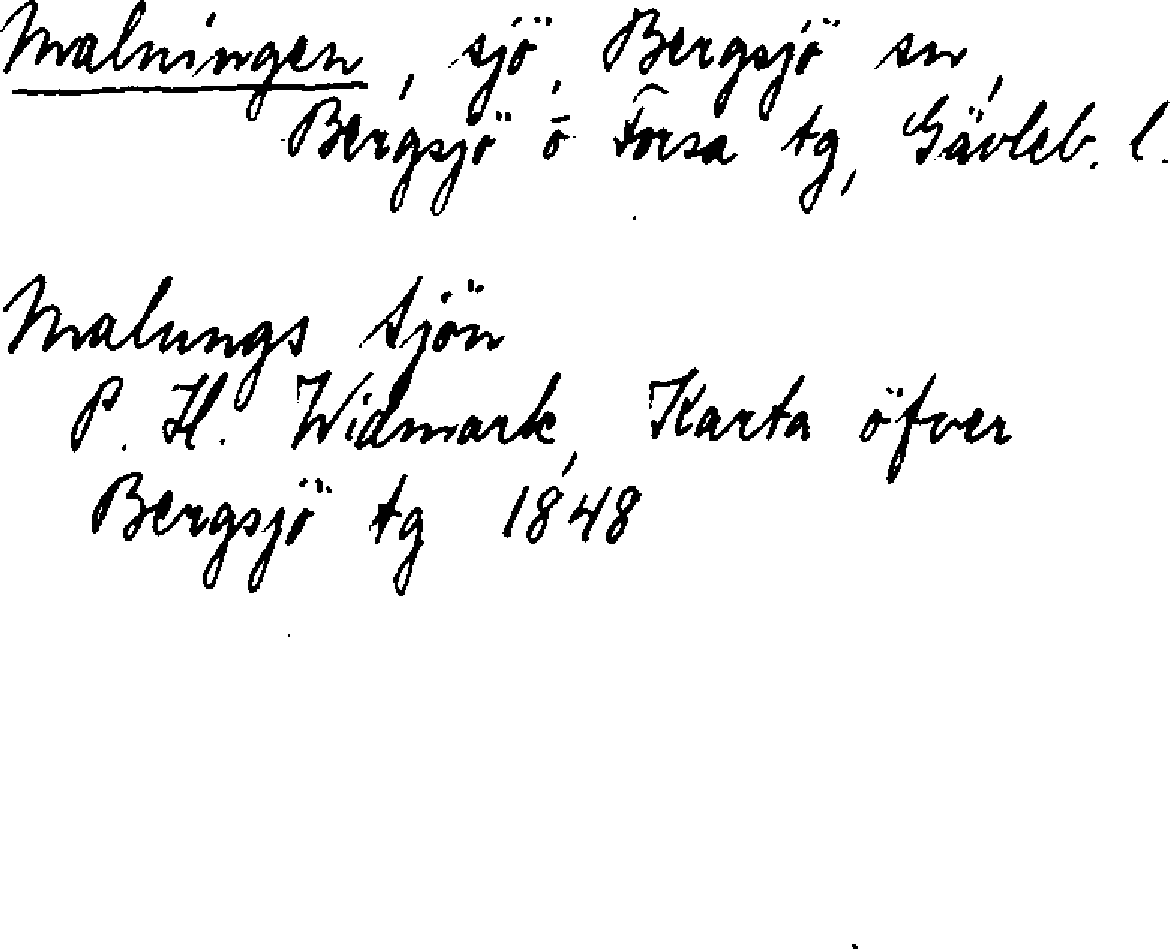 Malningen, sjö, Bergsjö sn,
Bergsjö o Forsa tg, Gävleb. l.
Malungs tjön
P. H. Widmark, Karta öfver
Bergsjö tg 1848